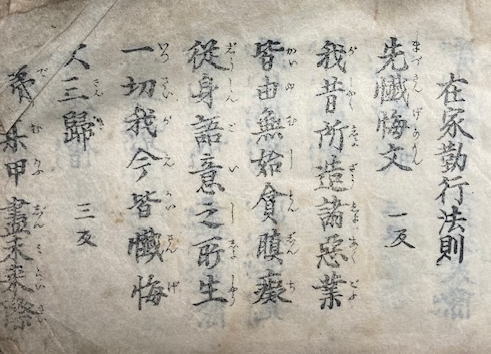 在家勤行法則
先懺悔文 一反
我昔所造諸惡業
皆由無始貪瞋癡
從身語意之所生
一切我今皆懺悔
次三歸 三反
弟 某甲盡未来際